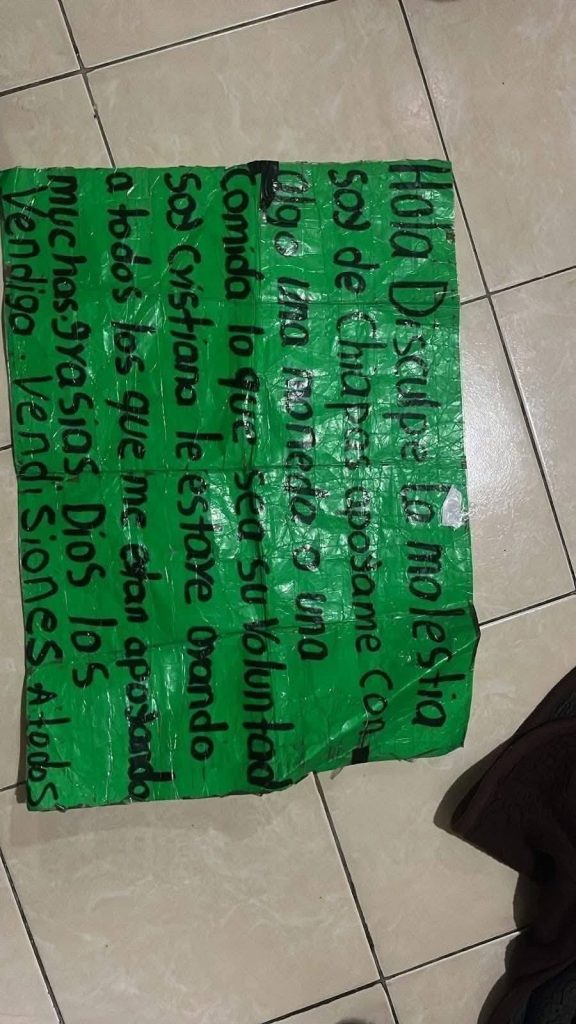 Hola Disculpe la molestia
soy de Chiapas aposame con
algo una moneda o una
comida lo que sea su voluntad
soy cristiana le estare orando
a todos los que me etan aposando
muchas grasias Dios los
Vendiga vendisiones A todos